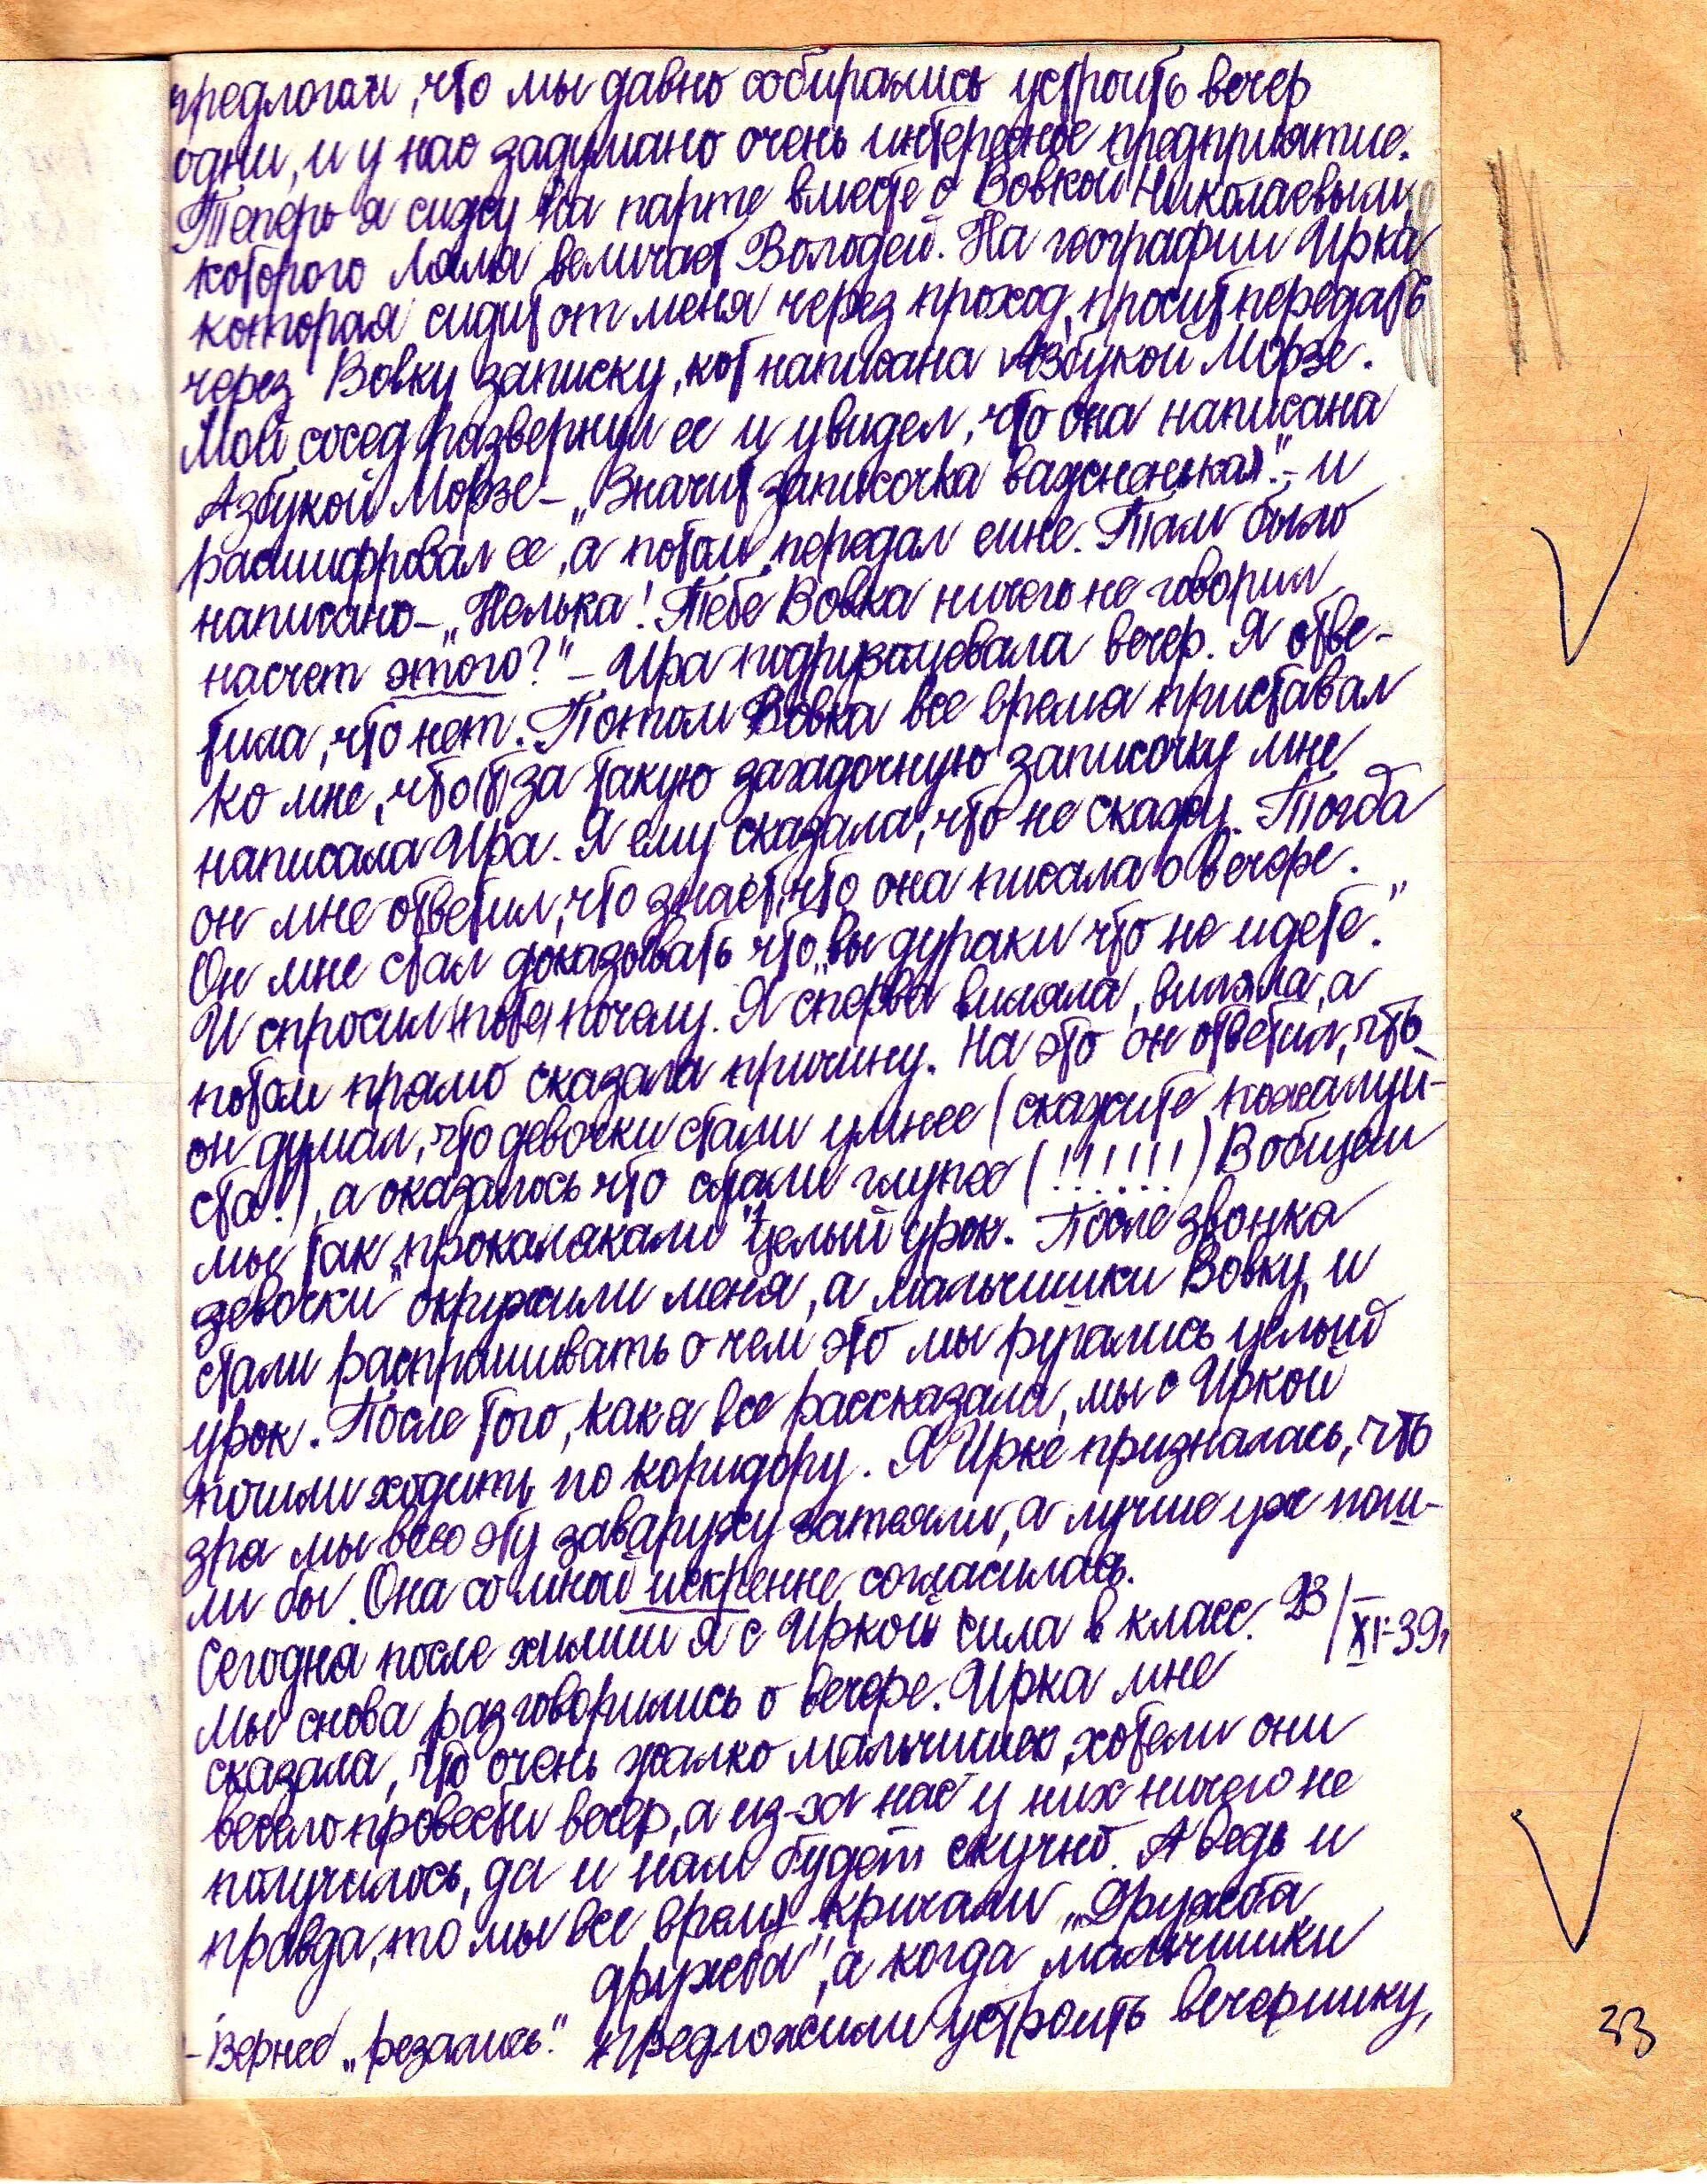 предлогом, что мы давно собирались устроить вечер
одни, и у нас задумано очень интересное предприятие.
Теперь я сижу на парте вместе с Вовкой Николаевым,
которого Ляля величает Володей. На географии Ирка
которая сидит от меня через проход, просит передать
через Вовку записку, кот написана Азбукой Морзе.
Мой сосед развернул ее и увидел, что она написана
Азбукой Морзе – „Значит записочка важненькая." – и
расшифровал ее, а потом передал мне. Там было
написано – „Нелька! Тебе Вовка ничего не говорил
насчет этого?" – Ира подразумевала вечер. Я отве-
тила, что нет. Потом Вовка все время приставал
ко мне, что за такую загадочную записочку мне
написала Ира. Я ему сказала, что не скажу. Тогда
он мне ответил, что знает, что она писала о вечере.
Он мне стал доказывать что „вы дураки что не идете."
И спросил почему. Я сперва виляла, виляла, а
потом прямо сказала причину. На это он ответил, что
он думал, что девочки стали умнее (скажите пожалуй-
ста!), а оказалось что стали глупее (!!!!!!) В общем
мы так „прокалякали" целый урок. После звонка
девочки окружили меня, а мальчишки Вовку, и
стали распрашивать о чем это мы ругались целый
урок. После того, как я все рассказала, мы с Иркой
пошли ходить по коридору. Я Ирке призналась, что
зря мы всю эту заваруху затеяли, а лучше уж пош-
ли бы. Она со мной искренне согласилась.
23/XI-39г
Сегодня после химии я с Иркой сила в класс.
Мы снова разговорились о вечере. Ирка мне
сказала, что очень жалко мальчишек, хотели они
весело провести вечер, а из-за нас у них ничего не
получилось, да и нам будет скучно. А ведь и
правда, то мы все время кричали „Дружба,
дружба", а когда мальчишки
предложили устроить вечеринку,
– Вернее „резались."
33